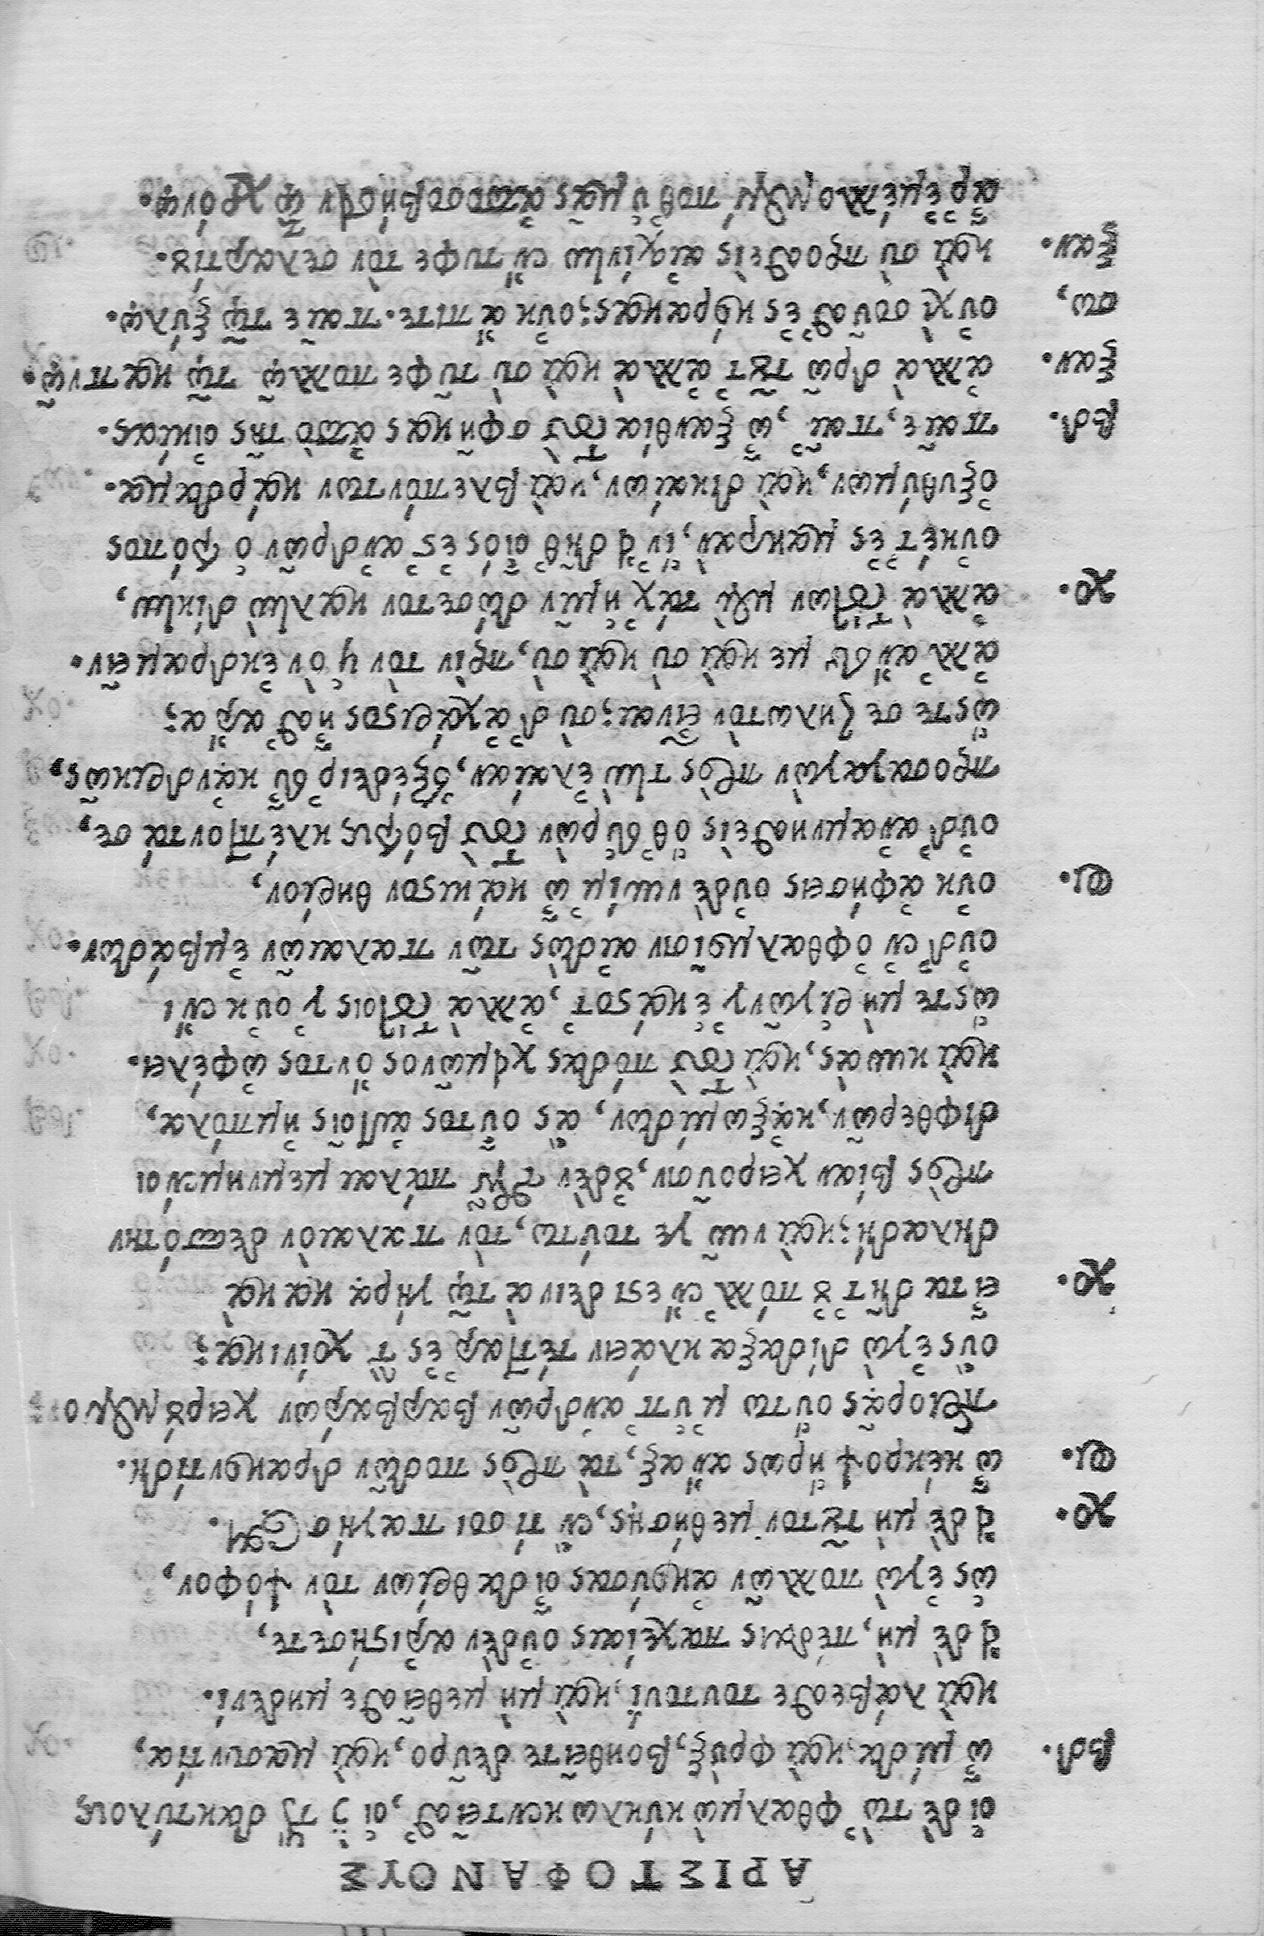 ΑΡΙΣΤΟΦΑΝΟΥΣ
οἱ δὲ τὠφθαλμὼ κύκλῳ κεντεῖσθ', οἱ δὲ τοὺς δακτύλους
βδ. ὦ μίδα, καὶ φρὺξ, βοηθεῖτε δεῦρο, καὶ μασυντία,
καὶ λάβεσθε τουτουί, καὶ μὴ μεθεῖσθε μηδενί.
εἰ δὲ μὴ, πέδαις παχείαις οὐδὲν ἀριστήσετε,
ὡς ἐγὼ πολλῶν ἀκούσας οἶδα θρίων τὸν ψόφον,
χο. εἰ δὲ μὴ τοῦτον μεθήσῃς, ἔν τί σοι παγήσεται.
φι. ὦ κέκροψ ἥρως ἄναξ, τὰ πρὸς ποδῶν δρακοντίδη.
περιορᾷς οὕτω μ' ὑπ' ἀνδρῶν βαρβάρων χειρούμενον
οὓς ἐγὼ δίδαξα κλάειν τέτταρ' ἐς τὴν χοίνικα;
χο. εἶτα δῆτ' οὐ πόλλ' ἔνεστι δεινὰ τῷ γήρᾳ κακὰ
δηλαδή; καὶ νῦν γε τούτω, τὸν παλαιὸν δεσπότην
πρὸς βίαν χειροῦσιν, οὐδὲν τῶν πάλαι μεμνημένοι
διφθερῶν, κἀξωμίδων, ἃς οὗτος αὐτοῖς ἠμπόλα,
καὶ κυνᾶς, καὶ τοὺς πόδας χειμῶνος ὄντος ὠφέλει.
ὥστε μὴ ῥιγῶν γ' ἑκάστοτ', ἀλλὰ τούτοις γ' οὐκ ἔνι
οὐδ' ἐν ὀφθαλμοῖσιν αἰδὼς τῶν παλαιῶν ἐμβάδων.
φι. οὐκ ἀφήσεις οὐδὲ νυνί μ' ὦ κάκιστον θηρίον,
οὐδ' ἀναμνησθεὶς ὅθ' εὑρὼν τοὺς βότρυς κλέπτοντά σε,
προσαγαγὼν πρὸς τὴν ἐλαίαν, ἐξέδειρ' εὖ κἀνδρικῶς,
ὥστε σε ζηλωτὸν εἶναι; σὺ δ' ἀχάριστος ἦσθ' ἄρα;
ἀλλ' ἄνες με καὶ σὺ καὶ σὺ, πρὶν τὸν υἱὸν ἐκδραμεῖν.
χο. ἀλλὰ τούτων μὲν τάχ' ἡμῖν δώσετον καλὴν δίκην,
οὐκέτ' ἐς μακρὰν, ἵν' εἰδῆθ' οἷός ἐστ' ἀνδρῶν ὁ τρόπος
ὀξυθύμων, καὶ δικαίων, καὶ βλεπόντων κάρδαμα.
βδ. παῖε, παῖ', ὦ ξανθία τοὺς σφῆκας ἀπὸ τῆς οἰκίας.
ξαν. ἀλλὰ δρῶ τοῦτ' ἀλλὰ καὶ σὺ τῦφε πολλῷ τῷ καπνῷ.
σω, οὐχὶ σοῦσθ' ἐς κόρακας; οὐκ ἄπιτε. παῖε τῷ ξύλῳ.
ξαν. καὶ σὺ προσθεὶς αἰσχίνην ἔντυφε τὸν σελαρτίου.
ἆρ' ἐμέλλομέν ποθ' ὑμᾶς ἀποσοβήσειν τῷ χρόνῳ.